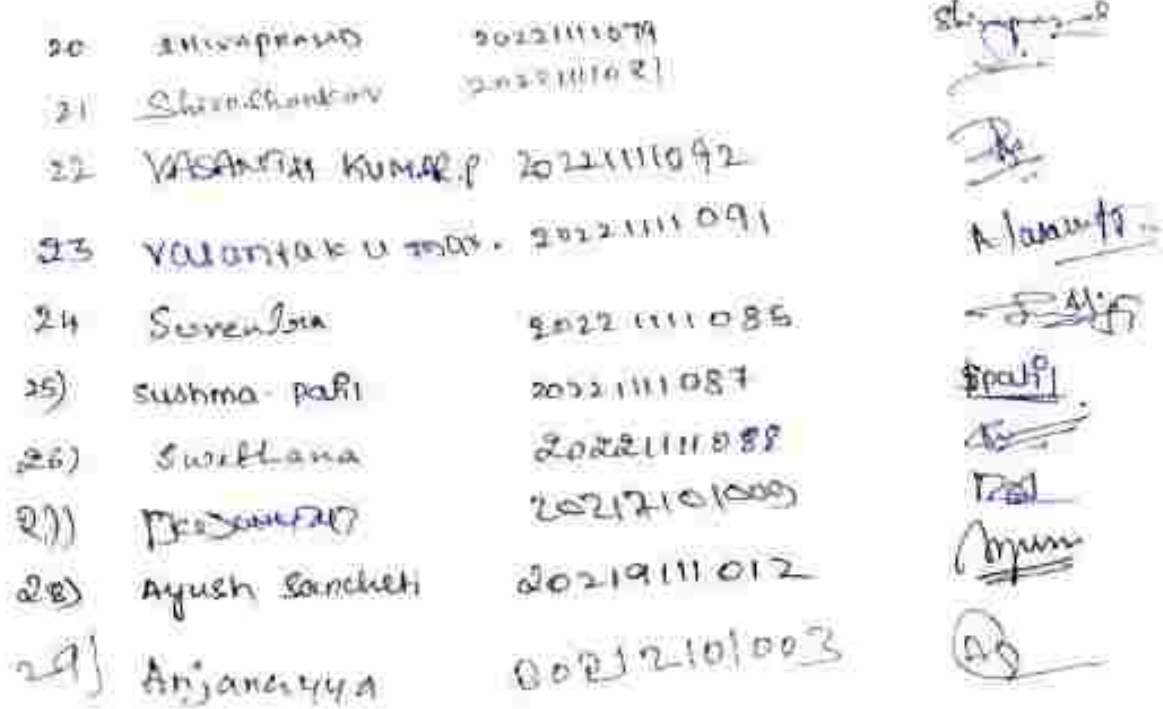 20 SHIVAPRASAD 20221111079 Shivaprasad
21 Shivashankar 20221111081
22 VASANTH KUMAR.P 20221111092
23 Vasantakumar. 20221111091
24 Surendra 20221111085
25) Sushma patil 20221111087 Spatil
26) Swethana 20221111088
27) 20212101009
28) Ayush Sancheti 20219111012 Ayush
29) Anjanayya 20212101003